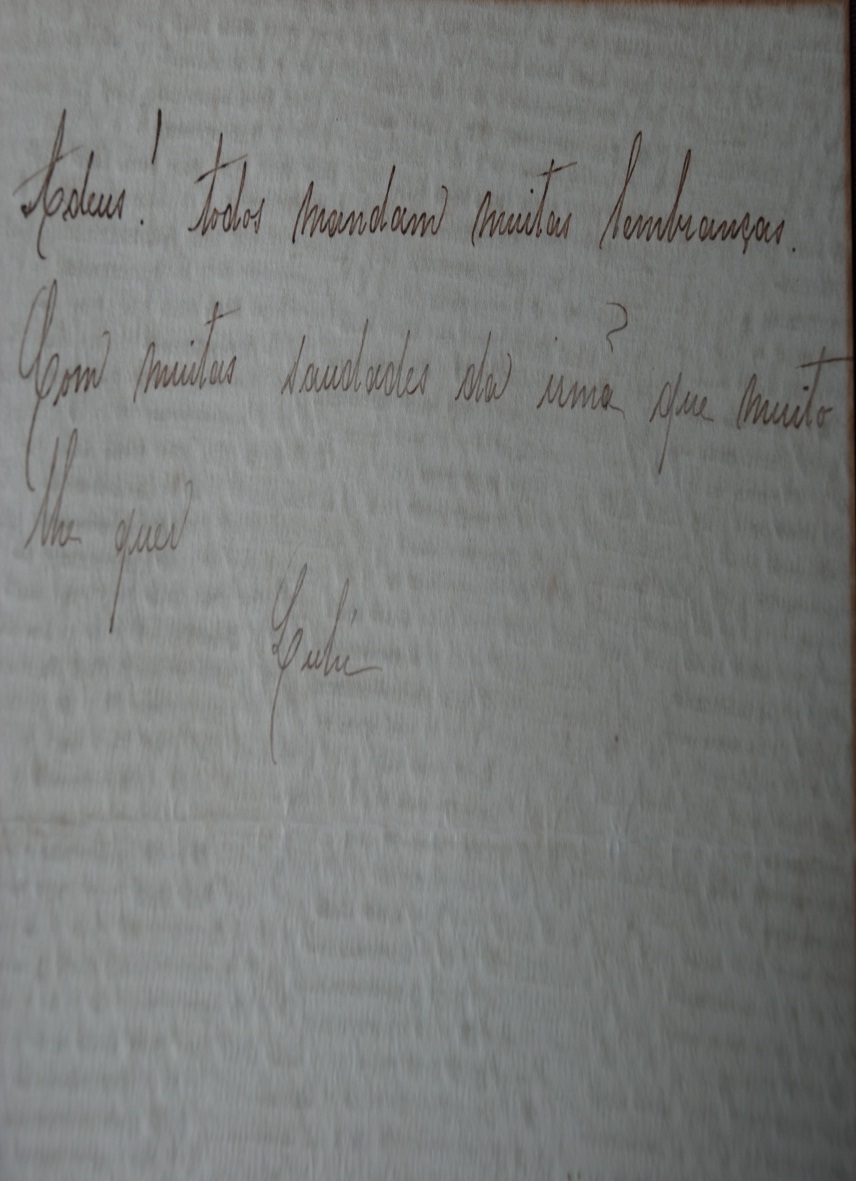 Adeus! todos mandam muitas lembranças.
Com muitas saudades da irmã que muito
lhe quer